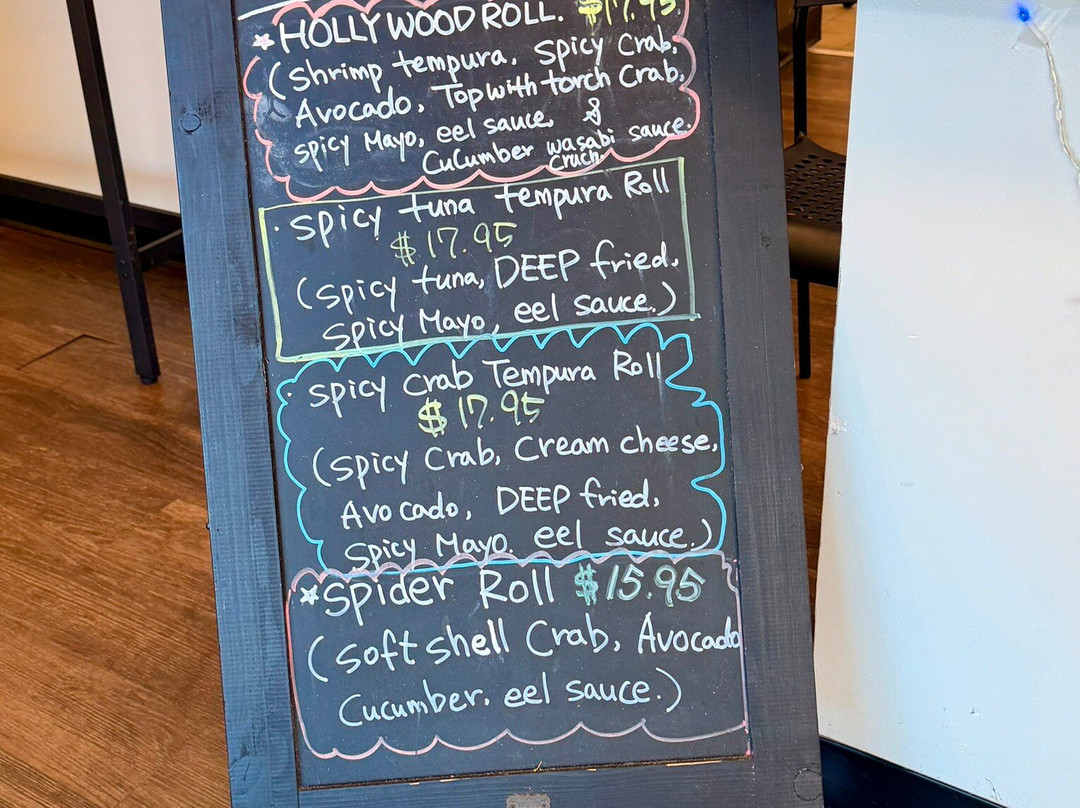 *HOLLYWOOD ROLL. $17.95
(Shrimp tempura, Spicy Crab,
Avocado, Top with torch Crab,
spicy Mayo, eel sauce, &
CuCumber wasabi sauce,
Cruch
· Spicy tuna tempura Roll
$17.95
(Spicy tuna, DEEP fried,
Spicy Mayo, eel sauce.)
· Spicy crab Tempura Roll
$17.95
(Spicy Crab, Cream cheese,
Avocado, DEEP fried,
Spicy Mayo. eel sauce.)
*Spider Roll $15.95
(Soft shell Crab, Avocado
Cucumber. eel sauce.)